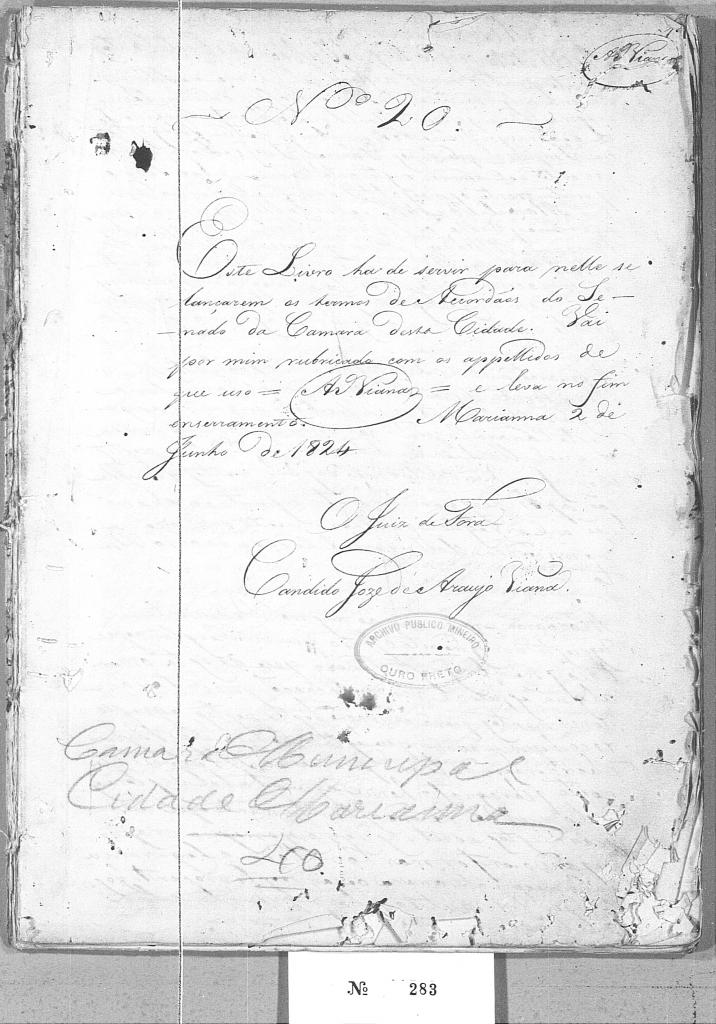 AVianna
N.º 20.
Este Livro ha de servir para nelle se
lançarem os termos de Acordãos do Se-
-nado da Camara desta Cidade. Vai
por mim rubricado com os appellidos de
que uso = AVianna = e leva no fim
enserramento. Marianna 2 de
Junho de 1824
O Juiz de Fora
Candido Joze de Araujo Viana.
ARCHIVO PUBLICO MINEIRO
OURO PRETO
Camara Municipal
Cidade Marianna
No 283